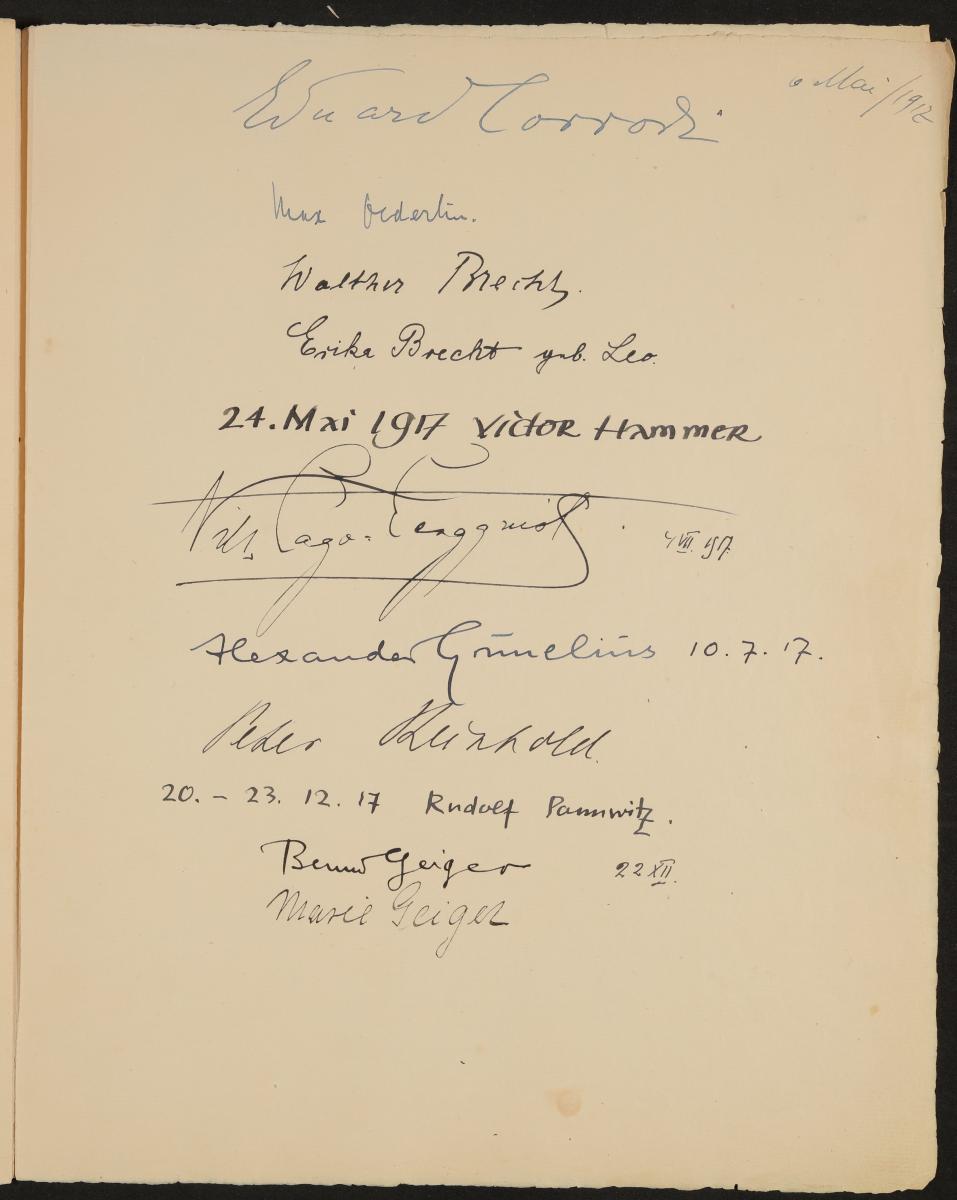 6 Mai/1917
Eduard Corrodi.
Max Oederlin.
Walther Brecht.
Erika Brecht geb. Leo.
24. Mai 1917 Victor Hammer
Nils 4 VII. 1917
Alexander Gūnelīus 10.7.17.
Peter Reinhold.
20. – 23. 12. 17 Rudolf Pannwitz.
Benno Geiger 22 XII.
Marie Geiger